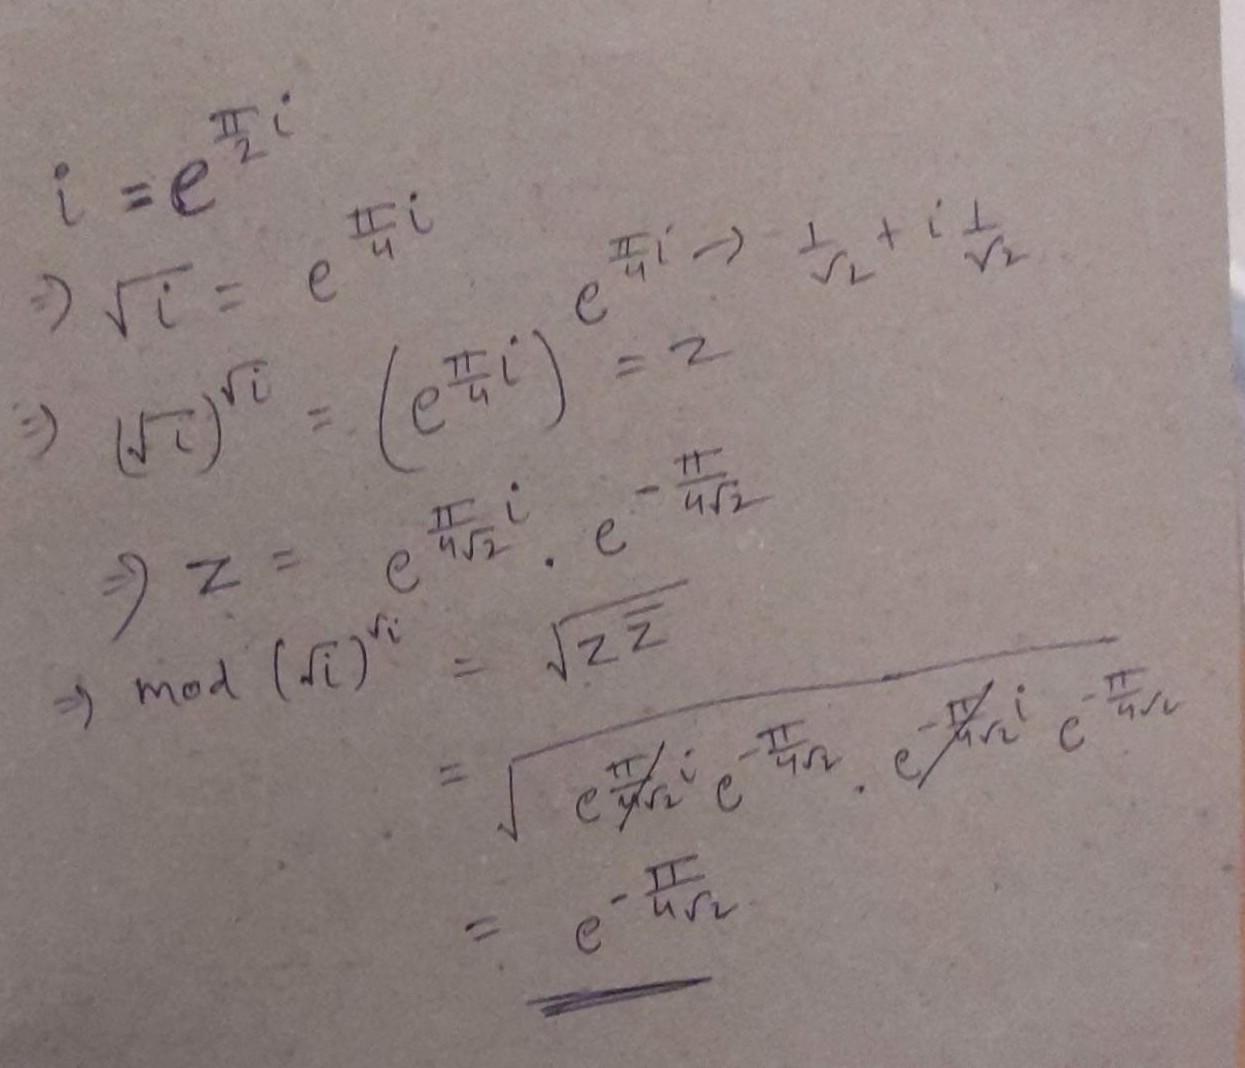 i = e^{π/2 i}
⇒ √i = e^{π/4 i}
⇒ (√i)^{√i} = (e^{π/4 i})^{e^{π/4 i} → 1/√2 + i 1/√2} = z
⇒ z = e^{π/4√2 i} . e^{-π/4√2}
⇒ mod (√i)^{√i} = √(z z̄)
= √(e^{π/4√2 i} e^{-π/4√2} . e^{-π/4√2 i} e^{-π/4√2})
= e^{-π/4√2}